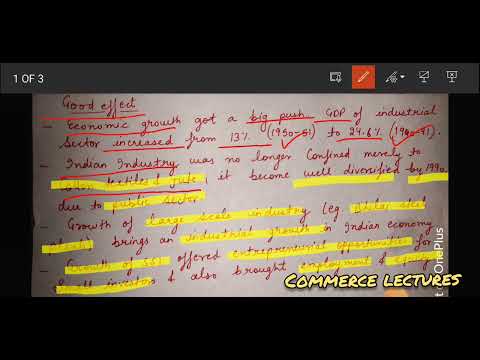 1 OF 3
Good effect
- Economic growth got a big push. GDP of industrial
Sector increased from 13% (1950-51) to 24.6% (1990-91).
- Indian Industry was no longer confined merely to
cotton textiles & jute, it become well diversified by 1990
due to public sector
- Growth of large scale industry (eg Bhilai steel
plant) brings an industrial growth in Indian economy
- Growth of SSI offered entrepreneurial opportunities for
small investors & also brought employment & equity
COMMERCE LECTURES
OnePlus